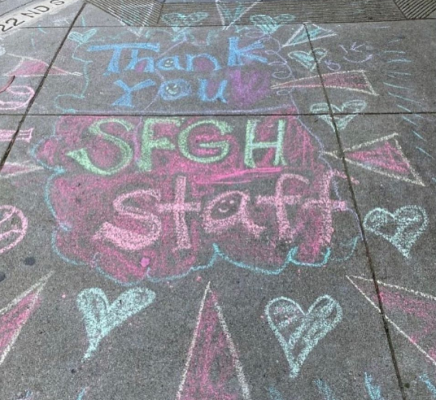 22ND S
Thank
You
SFGH
Staff